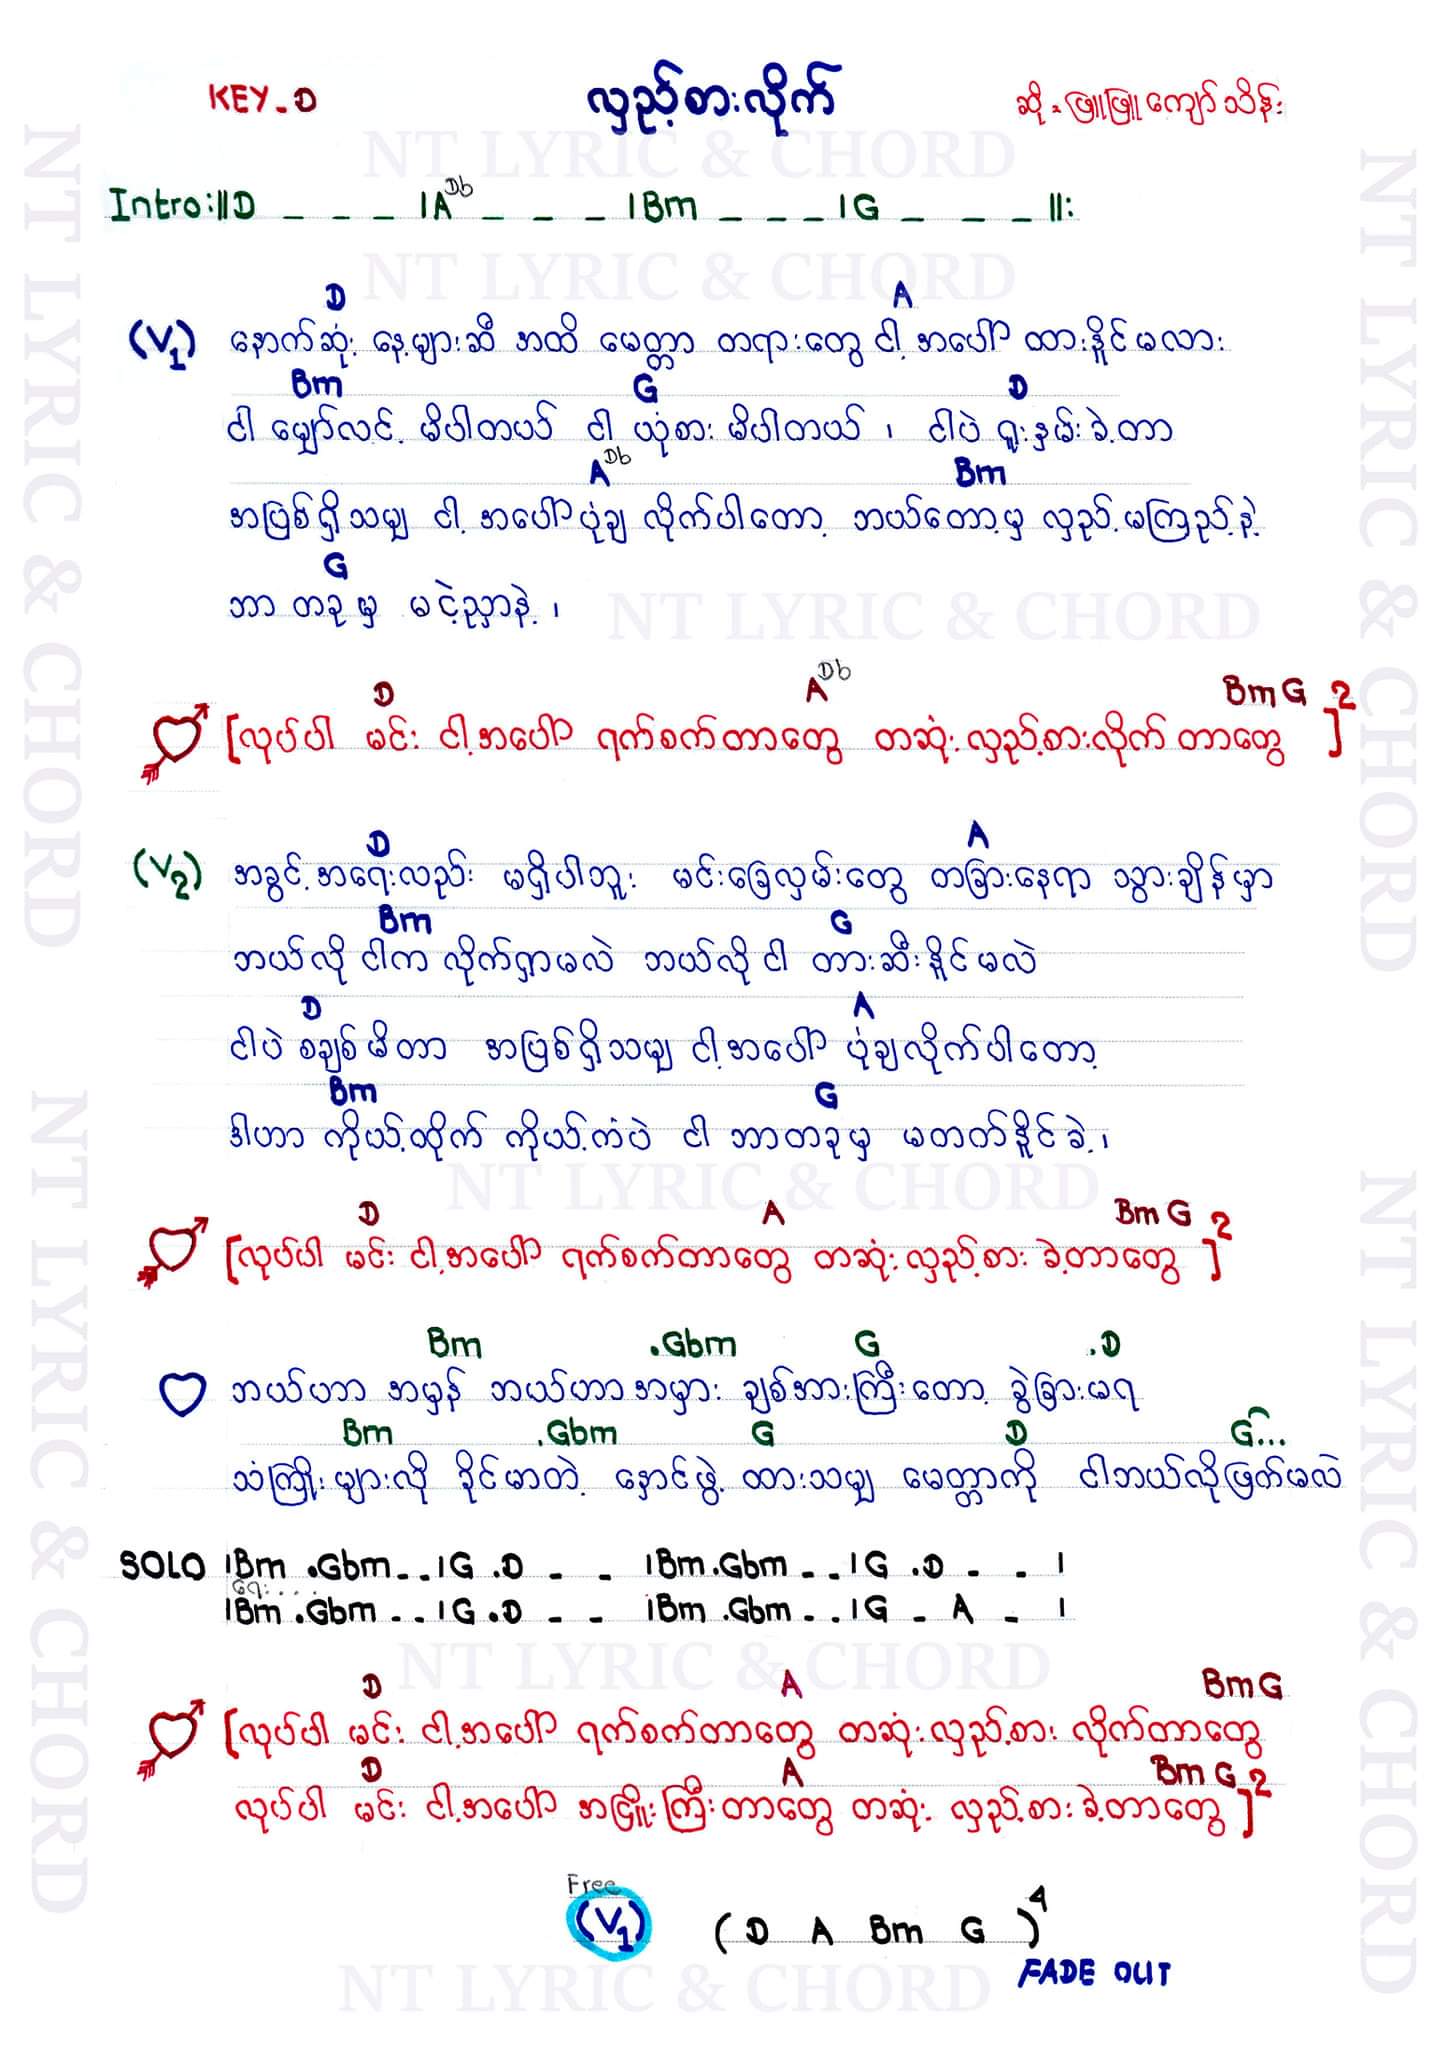 KEY_D လှည့်စားလိုက် ဆို - ဖြူဖြူကျော်သိန်း
NT LYRIC & CHORD
Intro:||D _ _ _ |A Db _ _ _ |Bm _ _ _ |G _ _ _ ||:
NT LYRIC & CHORD
D A
(V1) နောက်ဆုံး နေ့များဆီ အထိ မေတ္တာ တရားတွေ ငါ့ အပေါ် ထားနိူင်မလား
Bm G D
ငါ မျှော်လင့် မိပါတယ် ငါ ယုံစား မိပါတယ် ၊ ငါပဲ ရူးနှမ်းခဲ့တာ
A Db Bm
အဖြစ်ရှိသမျှ ငါ့ အပေါ် ပုံချ လိုက်ပါတော့ ဘယ်တော့မှ လှည့် မကြည့်နဲ့
G
ဘာ တခုမှ မငဲ့ညှာနဲ့ ၊
NT LYRIC & CHORD
D A Db Bm G
[လုပ်ပါ မင်း ငါ့အပေါ် ရက်စက်တာတွေ တဆုံး လှည့်စားလိုက် တာတွေ ]2
D A
(V2) အခွင့်အရေးလည်း မရှိပါဘူး မင်းခြေလှမ်းတွေ တခြားနေရာ သွားချိန်မှာ
Bm G
ဘယ်လို ငါက လိုက်ရှာမလဲ ဘယ်လို ငါ တားဆီးနိူင်မလဲ
D A
ငါပဲ စချစ်မိတာ အဖြစ်ရှိသမျှ ငါ့အပေါ် ပုံချလိုက်ပါတော့
Bm G
ဒါဟာ ကိုယ့်ထိုက် ကိုယ့်ကံပဲ ငါ ဘာတခုမှ မတတ်နိူင်ခဲ့ ၊
NT LYRIC & CHORD
D A Bm G
[လုပ်ပါ မင်း ငါ့အပေါ် ရက်စက်တာတွေ တဆုံး လှည့်စား ခဲ့တာတွေ ]2
Bm .Gbm G .D
ဘယ်ဟာ အမှန် ဘယ်ဟာအမှား ချစ်အားကြီးတော့ ခွဲခြားမရ
Bm .Gbm G D G...
သံကြိုးများလို ခိုင်မာတဲ့ နှောင်ဖွဲ့ ထားသမျှ မေတ္တာကို ငါဘယ်လိုဖြတ်မလဲ
SOLO |Bm .Gbm _ _ |G .D _ _ |Bm .Gbm _ _ |G .D _ _ |
|Bm .Gbm _ _ |G .D _ _ |Bm .Gbm _ _ |G _ A _ |
NT LYRIC & CHORD
D A Bm G
[လုပ်ပါ မင်း ငါ့အပေါ် ရက်စက်တာတွေ တဆုံး လှည့်စား လိုက်တာတွေ
D A Bm G
လုပ်ပါ မင်း ငါ့အပေါ် အငြိုးကြီးတာတွေ တဆုံး လှည့်စားခဲ့တာတွေ ]2
Free
(V1) ( D A Bm G )4
FADE OUT
NT LYRIC & CHORD
NT LYRIC & CHORD
NT LYRIC & CHORD
NT LYRIC & CHORD
NT LYRIC & CHORD